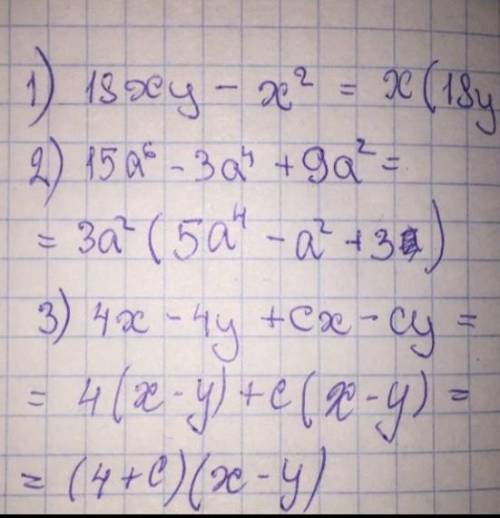 1) 18xy - x² = x(18y
2) 15a⁶ - 3a⁴ + 9a² =
= 3a² (5a⁴ - a² + 3)
3) 4x - 4y + cx - cy =
= 4(x - y) + c(x - y) =
= (4 + c)(x - y)